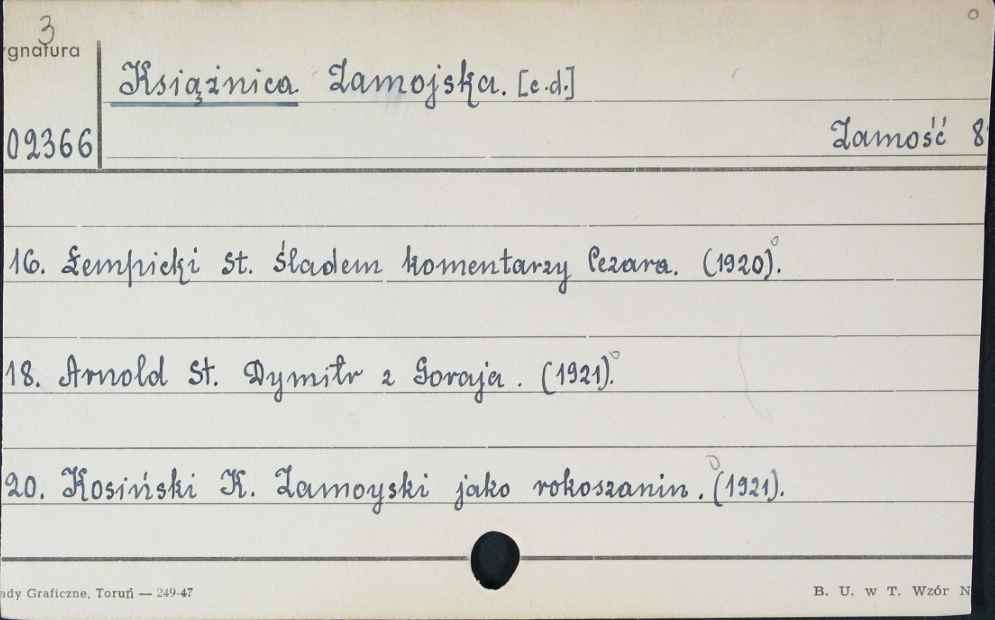 3
ygnatura
Książnica Zamojska. [c.d.]
02366
Zamość 8
16. Łempicki St. Śladem komentarzy Cezara. (1920).
18. Arnold St. Dymitr z Goraja. (1921).
20. Kosiński K. Zamoyski jako rokoszanin. (1921).
ady Graficzne, Toruń — 249-47
B. U. w T. Wzór N